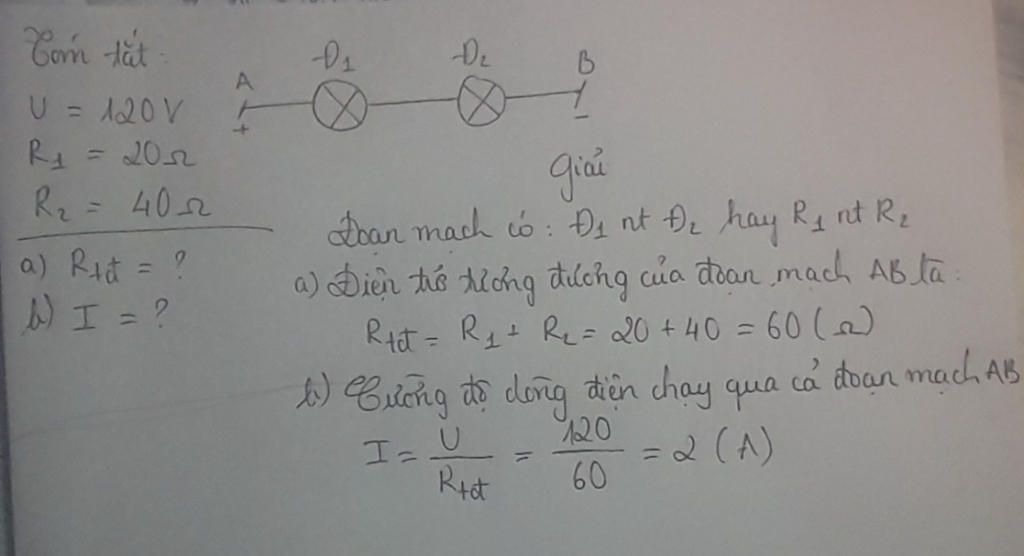 Tóm tắt:
U = 120V
R1 = 20Ω
R2 = 40Ω
a) Rtđ = ?
b) I = ?
A Đ1 Đ2 B
+ -
Giải
Đoạn mạch có: Đ1 nt Đ2 hay R1 nt R2
a) Điện trở tương đương của đoạn mạch AB là:
Rtđ = R1 + R2 = 20 + 40 = 60 (Ω)
b) Cường độ dòng điện chạy qua cả đoạn mạch AB
I = U/Rtđ = 120/60 = 2 (A)